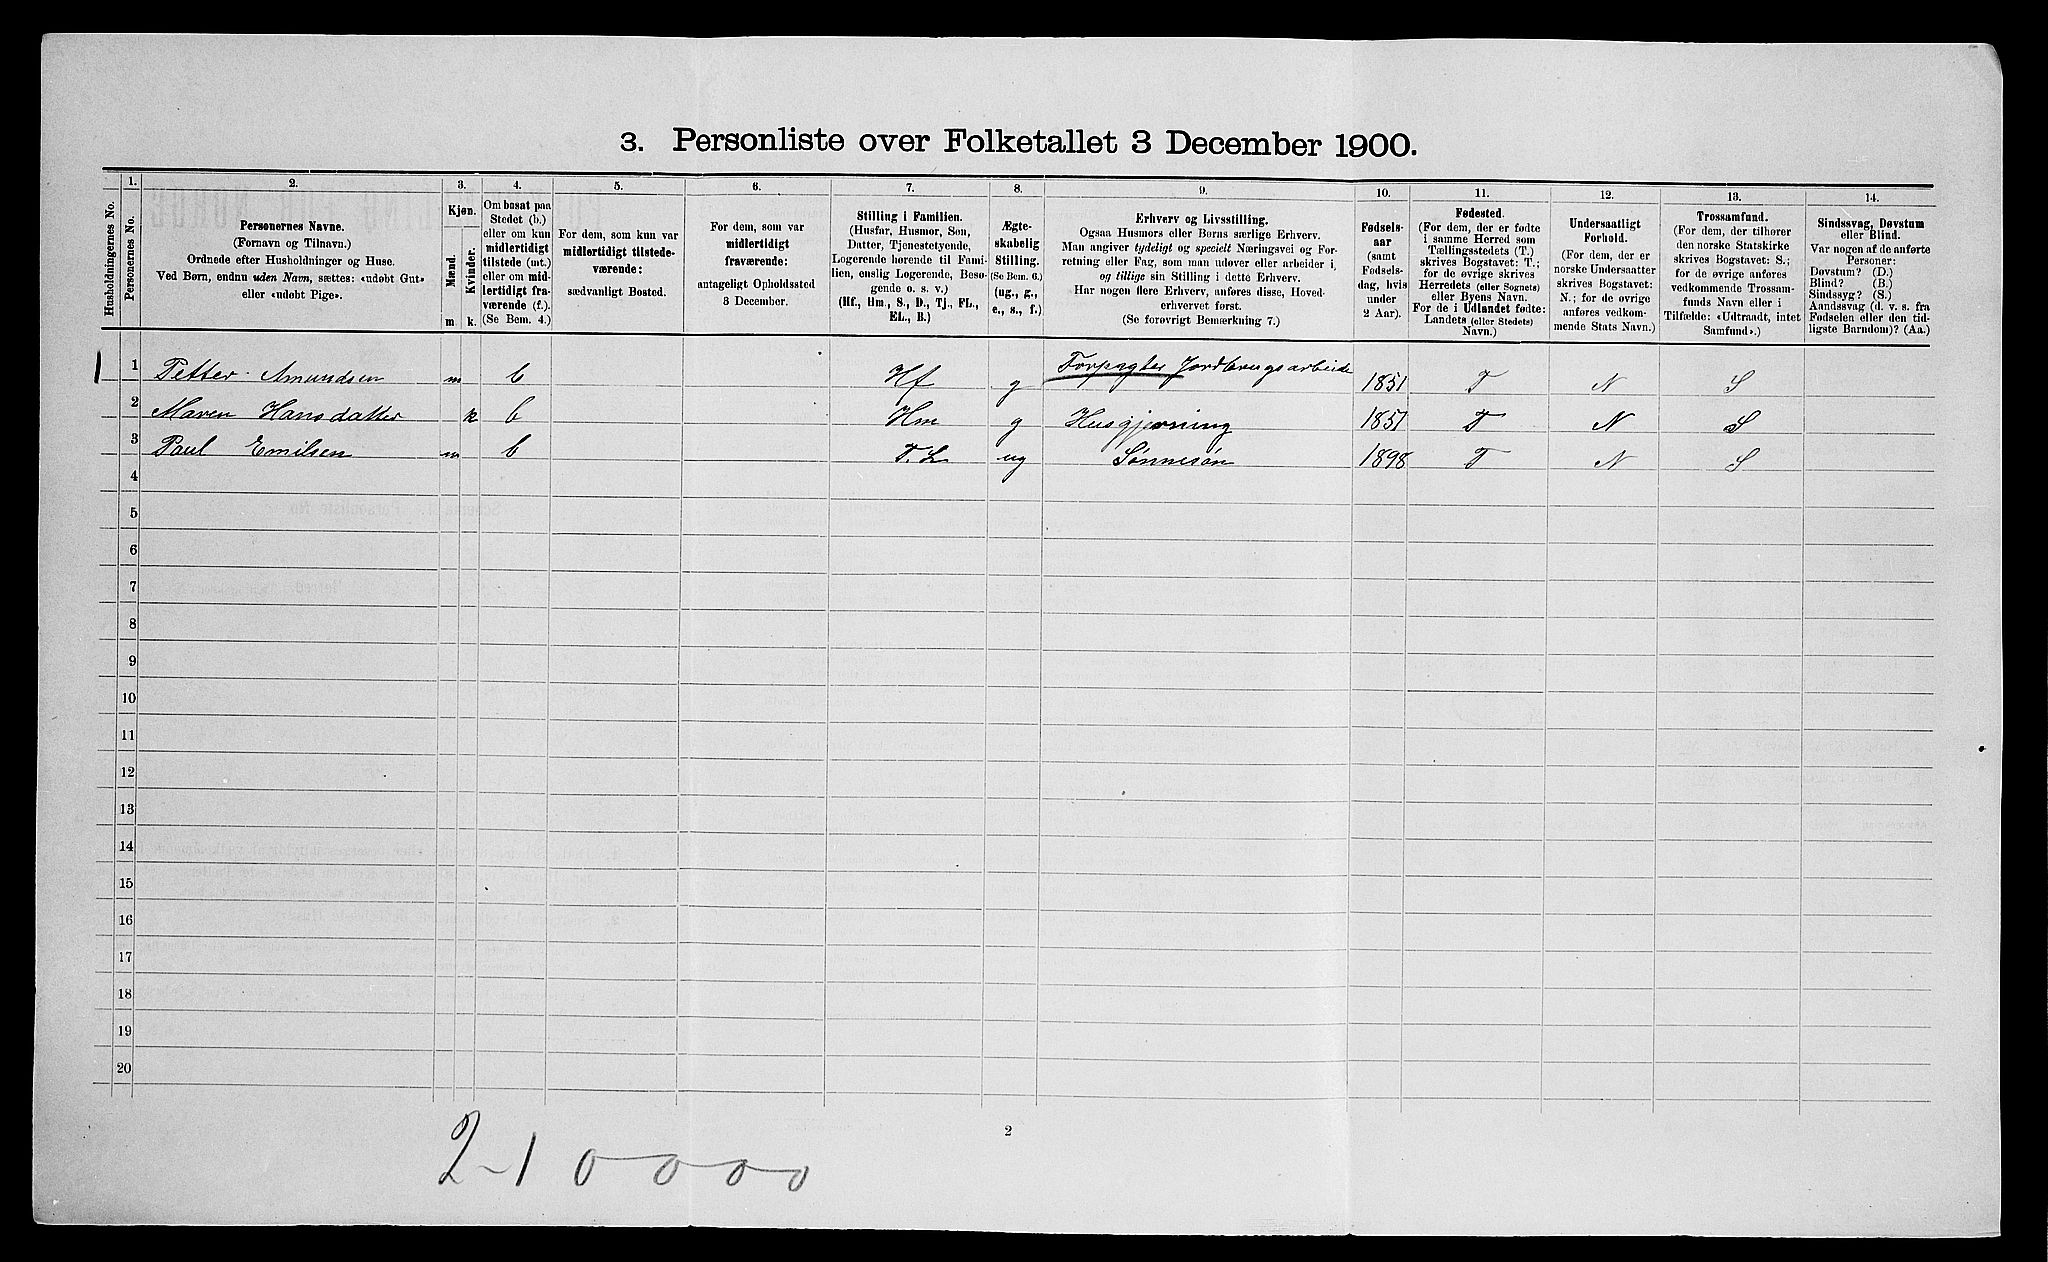 3. Personliste over Folketallet 3 December 1900.
1. 2. 3. 4. 5. 6. 7. 8. 9. 10. 11. 12. 13. 14.
Husholdningernes No.
Personernes No.
Personernes Navne.
(Fornavn og Tilnavn.)
Ordnede efter Husholdninger og Huse.
Ved Børn, endnu uden Navn, sættes: «udøbt Gut»
eller «udøbt Pige».
Kjøn.
Mænd.
Kvinder.
m. k.
Om bosat paa
Stedet (b.)
eller om kun
midlertidigt
tilstede (mt.)
eller om mid-
lertidigt fra-
værende (f.)
(Se Bem. 4.)
For dem, som kun var
midlertidigt tilstede-
værende:
sædvanligt Bosted.
For dem, som var
midlertidigt
fraværende:
antageligt Opholdssted
3 December.
Stilling i Familien.
(Husfar, Husmor, Søn,
Datter, Tjenestetyende,
Logerende hørende til Fami-
lien, enslig Logerende, Besø-
gende o. s. v.)
(Hf., Hm., S., D., Tj., FL.,
EL., B.)
Ægte-
skabelig
Stilling.
(Se Bem. 6.)
(ug., g.,
e., s., f.)
Erhverv og Livsstilling.
Ogsaa Husmors eller Børns særlige Erhverv.
Man angiver tydeligt og specielt Næringsvei og For-
retning eller Fag, som man udøver eller arbeider i,
og tillige sin Stilling i dette Erhverv.
Har nogen flere Erhverv, anføres disse, Hoved-
erhvervet først.
(Se forøvrigt Bemærkning 7.)
Fødsels-
aar
(samt
Fødsels-
dag, hvis
under
2 Aar).
Fødested.
(For dem, der er fødte
i samme Herred som
Tællingsstedets (T.)
skrives Bogstavet: T.;
for de øvrige skrives
Herredets (eller Sognets)
eller Byens Navn.
For de i Udlandet fødte:
Landets (eller Stedets)
Navn.)
Undersaatligt
Forhold.
(For dem, der er
norske Undersaatter
skrives Bogstavet:
N.; for de øvrige
anføres vedkom-
mende Stats Navn.)
Trossamfund.
(For dem, der tilhører
den norske Statskirke
skrives Bogstavet: S.;
for de øvrige anføres
vedkommende Trossam-
funds Navn eller i
Tilfælde: «Udtraadt, intet
Samfund».)
Sindssvag, Døvstum
eller Blind.
Var nogen af de anførte
Personer:
Døvstum? (D.)
Blind? (B.)
Sindssyg? (S.)
Aandssvag (d. v. s. fra
Fødselen eller den tid-
ligste Barndom)? (Aa.)
1 1 Petter Amundsen m b Hf g Forpagter Jordbrugsarbeide 1851 T N S
2 Maren Hansdatter k b Hm g Husgjerning 1851 T N S
3 Paul Emilsen m b F.L ug Sønnesøn 1898 T N S
4
5
6
7
8
9
10
11
12
13
14
15
16
17
18
19
20
2
2-1 0 0 0 0